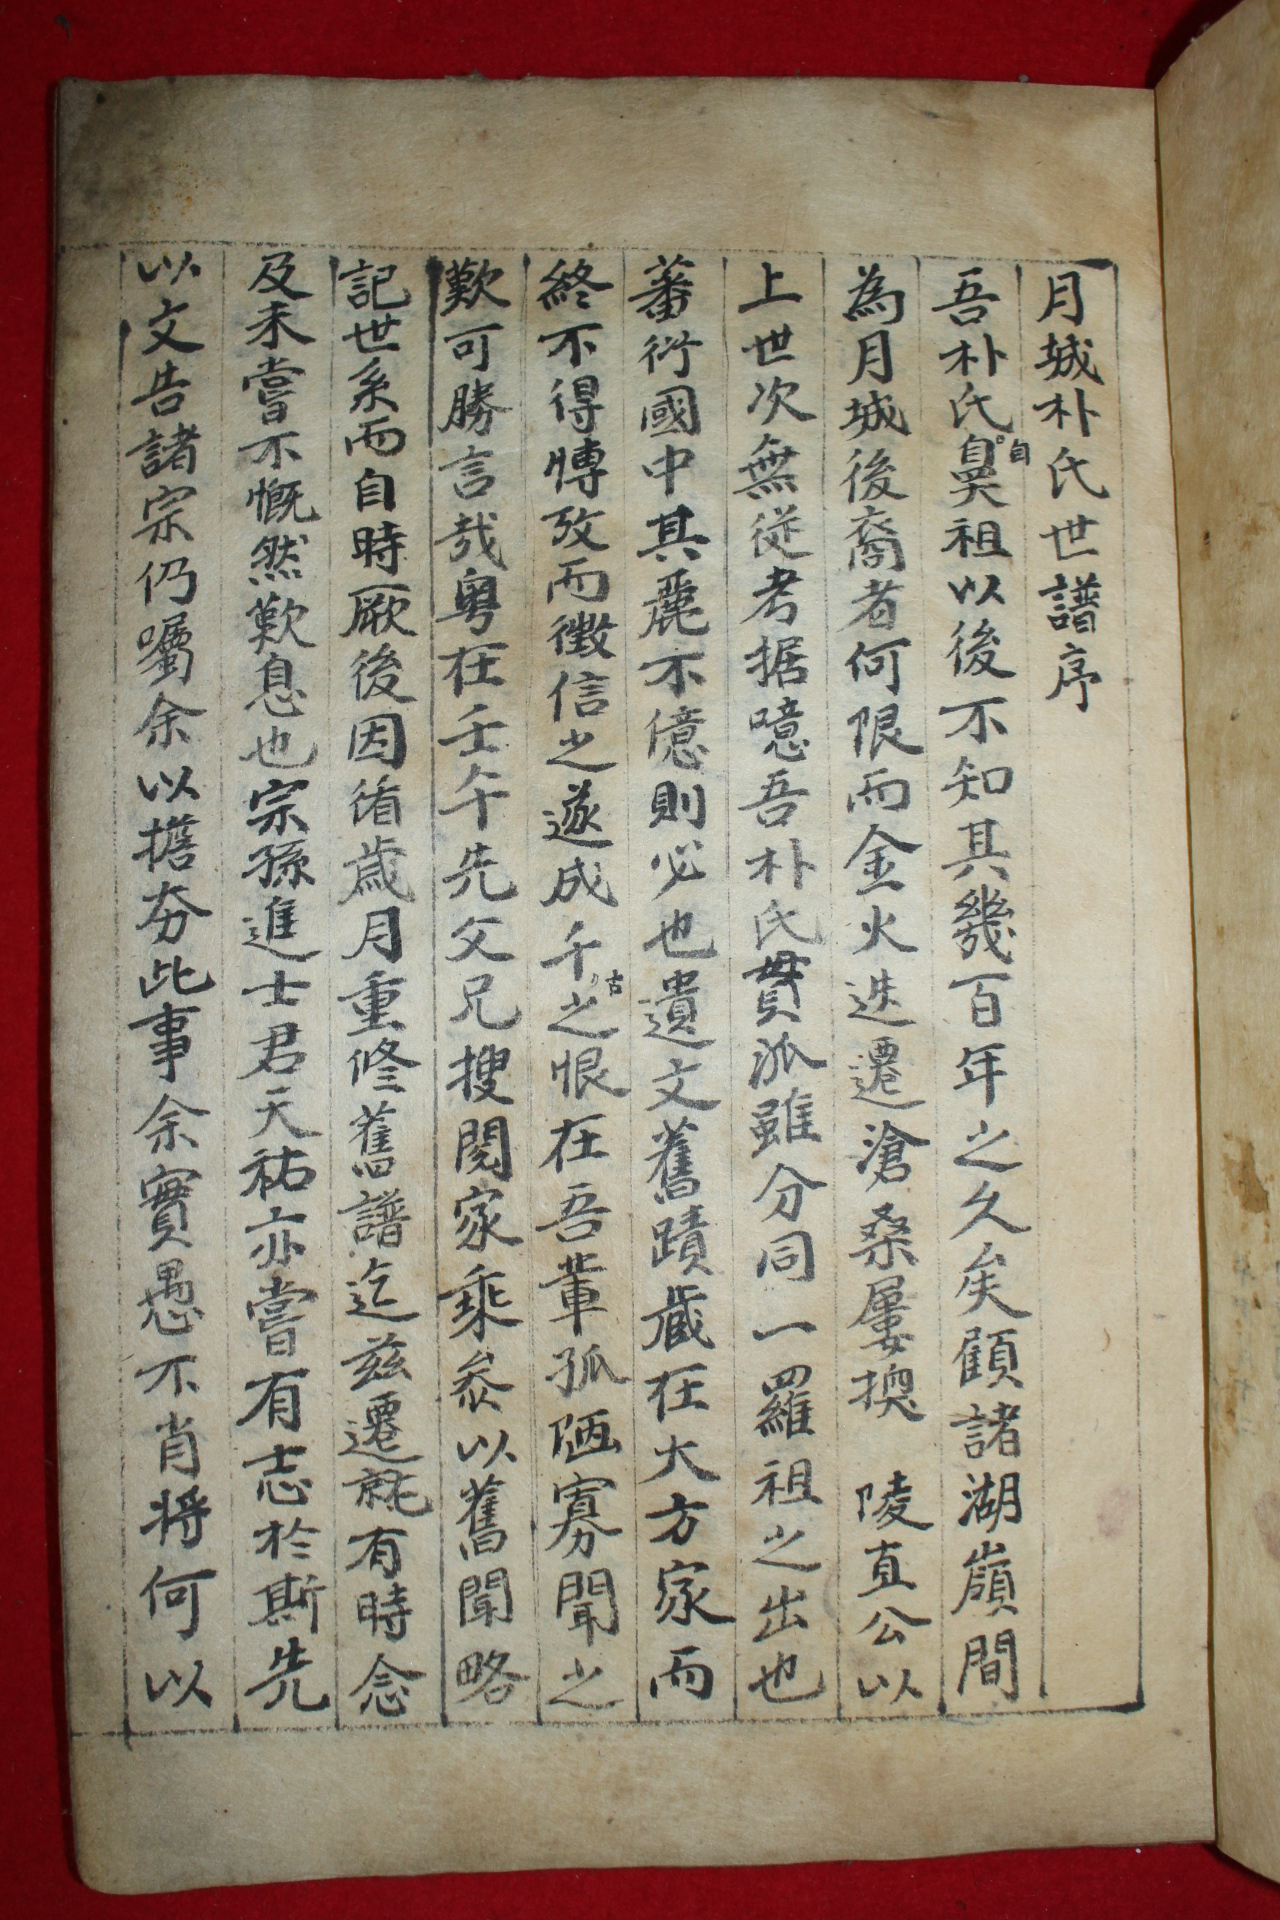 月城朴氏世譜序
吾朴氏自鼻祖以後不知其幾百年之久矣顧諸湖嶺間
為月城後裔者何限而金火迭遷滄桑屢換 陵直公以
上世次無從考据噫吾朴氏貫派雖分同一羅祖之出也
蕃衍國中其麗不億則必也遺文舊蹟蔵在大方家而
終不得博攷而徵信之遂成千古之恨在吾輩孤陋寡聞之
歎可勝言哉粤在壬午先父兄搜閱家乘叅以舊聞略
記世系而自時厥後因循歲月重修舊譜迄玆遷就有時念
及未嘗不慨然歎息也宗孫進士君天祐亦嘗有志於斯先
以文告諸宗仍囑余以擔夯此事余實愚不肖將何以